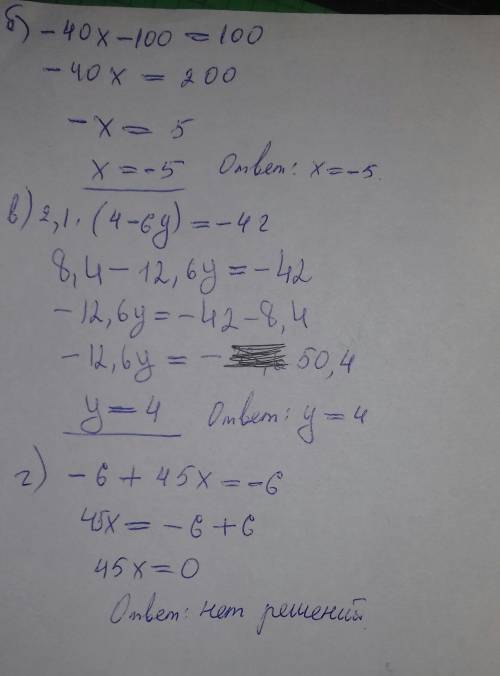 б) -40x-100=100
-40x=200
-x=5
x=-5 Ответ: x=-5.
в) 2,1·(4-6y)=-42
8,4-12,6y=-42
-12,6y=-42-8,4
-12,6y=-50,4
y=4 Ответ: y=4
г) -6+45x=-6
45x=-6+6
45x=0
Ответ: нет решений